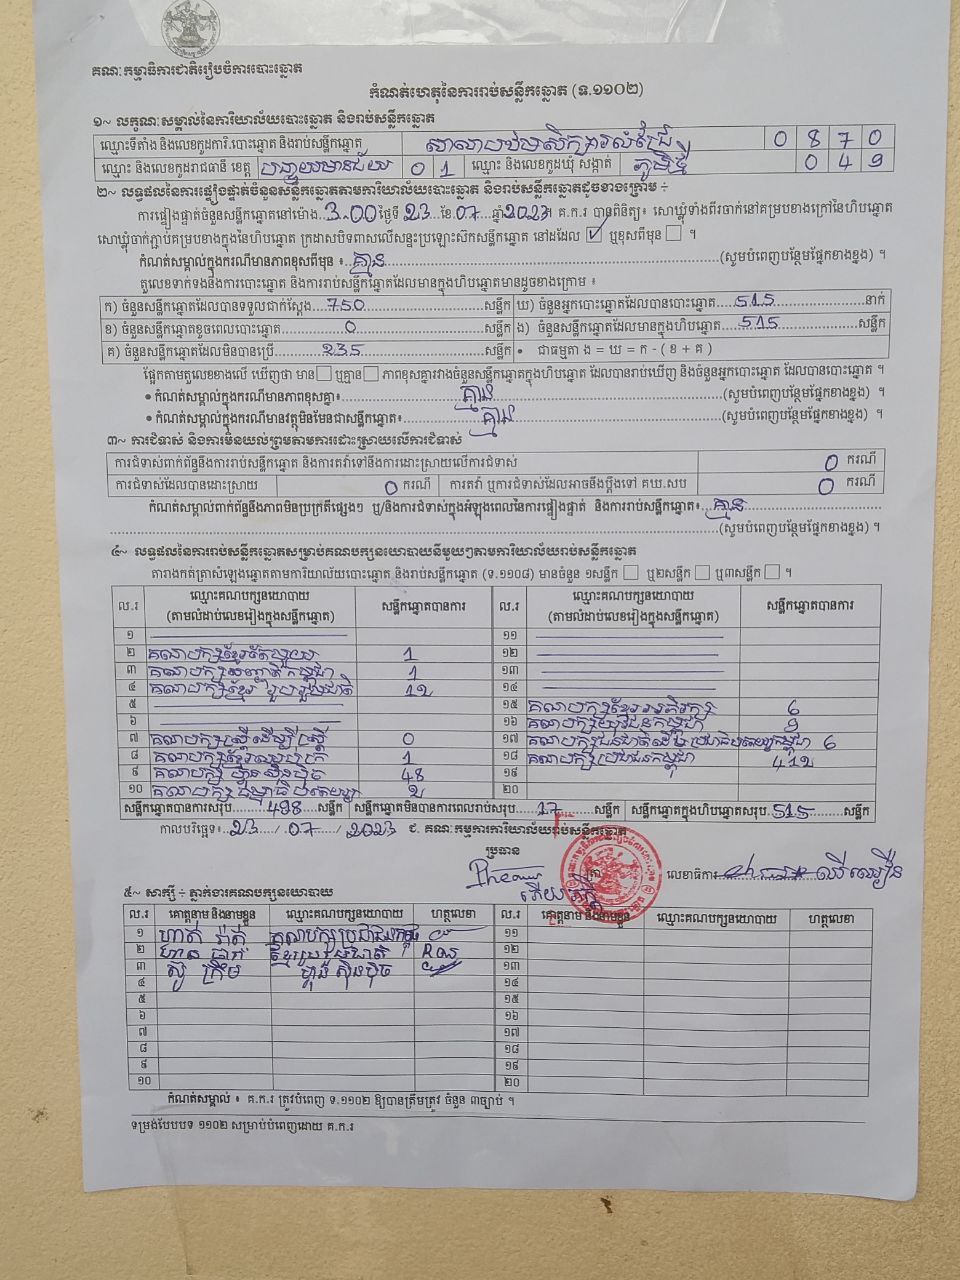 គណៈកម្មាធិការជាតិរៀបចំការបោះឆ្នោត
កំណត់ហេតុនៃការរាប់សន្លឹកឆ្នោត (ទ.១១០២)
១~ លក្ខណៈសម្គាល់នៃការិយាល័យបោះឆ្នោត និងរាប់សន្លឹកឆ្នោត
ឈ្មោះទីតាំង និងលេខកូដការិ.បោះឆ្នោត និងរាប់សន្លឹកឆ្នោត 0 8 7 0
ឈ្មោះ និងលេខកូដរាជធានី ខេត្ត បន្ទាយមានជ័យ 0 1 ឈ្មោះ និងលេខកូដឃុំ សង្កាត់ ភូមិថ្មី 0 4 9
២~ លទ្ធផលនៃការផ្ទៀងផ្ទាត់ចំនួនសន្លឹកឆ្នោតតាមការិយាល័យបោះឆ្នោត និងរាប់សន្លឹកឆ្នោតដូចខាងក្រោម ÷
ការផ្ទៀងផ្ទាត់ចំនួនសន្លឹកឆ្នោតនៅម៉ោង 3:00 ថ្ងៃទី 23 ខែ 07 ឆ្នាំ 2023 គ.ក.រ បានពិនិត្យ៖ សោឃ្លុំទាំងពីរចាក់នៅគម្របខាងក្រៅនៃហិបឆ្នោត
សោឃ្លុំចាក់ភ្ជាប់គម្របខាងក្នុងនៃហិបឆ្នោត ក្រដាសបិទពាសលើសន្ទះប្រឡោះស៊កសន្លឹកឆ្នោត នៅដដែល ☑ ឬខុសពីមុន ☐ ។
កំណត់សម្គាល់ក្នុងករណីមានភាពខុសពីមុន ៖ គ្មាន (សូមបំពេញបន្ថែមផ្នែកខាងខ្នង) ។
តួលេខទាក់ទងនឹងការបោះឆ្នោត និងការរាប់សន្លឹកឆ្នោតដែលមានក្នុងហិបឆ្នោតមានដូចខាងក្រោម ៖
ក) ចំនួនសន្លឹកឆ្នោតដែលបានទទួលជាក់ស្តែង 750 សន្លឹក ឃ) ចំនួនអ្នកបោះឆ្នោតដែលបានបោះឆ្នោត 515 នាក់
ខ) ចំនួនសន្លឹកឆ្នោតខូចពេលបោះឆ្នោត 0 សន្លឹក ង) ចំនួនសន្លឹកឆ្នោតដែលមានក្នុងហិបឆ្នោត 515 សន្លឹក
គ) ចំនួនសន្លឹកឆ្នោតដែលមិនបានប្រើ 235 សន្លឹក • ជាធម្មតា ង = ឃ = ក - ( ខ + គ )
ផ្អែកតាមតួលេខខាងលើ ឃើញថា មាន ☐ ឬគ្មាន ☐ ភាពខុសគ្នារវាងចំនួនសន្លឹកឆ្នោតក្នុងហិបឆ្នោត ដែលបានរាប់ឃើញ និងចំនួនអ្នកបោះឆ្នោត ដែលបានបោះឆ្នោត ។
• កំណត់សម្គាល់ក្នុងករណីមានភាពខុសគ្នា៖ គ្មាន (សូមបំពេញបន្ថែមផ្នែកខាងខ្នង) ។
• កំណត់សម្គាល់ក្នុងករណីមានវត្ថុមិនមែនជាសន្លឹកឆ្នោត៖ គ្មាន (សូមបំពេញបន្ថែមផ្នែកខាងខ្នង) ។
៣~ ការជំទាស់ និងការមិនយល់ព្រមតាមការដោះស្រាយលើការជំទាស់
ការជំទាស់ពាក់ព័ន្ធនឹងការរាប់សន្លឹកឆ្នោត និងការតវ៉ាទៅនឹងការដោះស្រាយលើការជំទាស់ 0 ករណី
ការជំទាស់ដែលបានដោះស្រាយ 0 ករណី ការតវ៉ា ឬការជំទាស់ដែលអាចនឹងប្តឹងទៅ គឃ.សប 0 ករណី
កំណត់សម្គាល់ពាក់ព័ន្ធនឹងភាពមិនប្រក្រតីផ្សេងៗ ឬ/និងការជំទាស់ក្នុងអំឡុងពេលនៃការផ្ទៀងផ្ទាត់ និងការរាប់សន្លឹកឆ្នោត៖ គ្មាន
(សូមបំពេញបន្ថែមផ្នែកខាងខ្នង) ។
៤~ លទ្ធផលនៃការរាប់សន្លឹកឆ្នោតសម្រាប់គណបក្សនយោបាយនីមួយៗតាមការិយាល័យរាប់សន្លឹកឆ្នោត
តារាងកត់ត្រាសំឡេងឆ្នោតតាមការិយាល័យបោះឆ្នោត និងរាប់សន្លឹកឆ្នោត (ទ.១១០៨) មានចំនួន ១សន្លឹក ☐ ឬ២សន្លឹក ☐ ឬ៣សន្លឹក ☐ ។
ល.រ ឈ្មោះគណបក្សនយោបាយ (តាមលំដាប់លេខរៀងក្នុងសន្លឹកឆ្នោត) សន្លឹកឆ្នោតបានការ ល.រ ឈ្មោះគណបក្សនយោបាយ (តាមលំដាប់លេខរៀងក្នុងសន្លឹកឆ្នោត) សន្លឹកឆ្នោតបានការ
១ ១១
២ គណបក្សខ្មែរតែមួយ 1 ១២
៣ 1 ១៣
៤ គណបក្សខ្មែររួបរួមជាតិ 12 ១៤
៥ ១៥ គណបក្សខ្មែរអភិរក្ស 6
៦ ១៦ គណបក្សយុវជនកម្ពុជា 9
៧ គណបក្សស្ត្រីដើម្បីស្ត្រី 0 ១៧ គណបក្សជនជាតិដើមប្រជាធិបតេយ្យកម្ពុជា 6
៨ 1 ១៨ គណបក្សប្រជាជនកម្ពុជា 412
៩ គណបក្សហ្វ៊ុនស៊ិនប៉ិច 48 ១៩
១០ គណបក្សធម្មាធិបតេយ្យ 2 ២០
សន្លឹកឆ្នោតបានការសរុប 498 សន្លឹក សន្លឹកឆ្នោតមិនបានការពេលរាប់សរុប 17 សន្លឹក សន្លឹកឆ្នោតក្នុងហិបឆ្នោតសរុប 515 សន្លឹក
កាលបរិច្ឆេទ៖ 23 / 07 / 2023 ជ. គណៈកម្មការការិយាល័យរាប់សន្លឹកឆ្នោត
ប្រធាន
លេខាធិការ
៥~ សាក្សី ÷ ភ្នាក់ងារគណបក្សនយោបាយ
ល.រ គោត្តនាម និងនាមខ្លួន ឈ្មោះគណបក្សនយោបាយ ហត្ថលេខា ល.រ គោត្តនាម និងនាមខ្លួន ឈ្មោះគណបក្សនយោបាយ ហត្ថលេខា
១ គណបក្សប្រជាជនកម្ពុជា ១១
២ ខ្មែររួបរួមជាតិ ១២
៣ ហ្វ៊ុនស៊ិនប៉ិច ១៣
៤ ១៤
៥ ១៥
៦ ១៦
៧ ១៧
៨ ១៨
៩ ១៩
១០ ២០
កំណត់សម្គាល់ ៖ គ.ក.រ ត្រូវបំពេញ ទ.១១០២ ឱ្យបានត្រឹមត្រូវ ចំនួន ៣ច្បាប់ ។
ទម្រង់បែបបទ ១១០២ សម្រាប់បំពេញដោយ គ.ក.រ